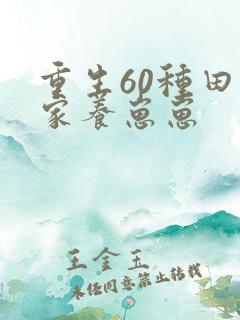 重生60種田
家養崽崽
王金玉
未经同意禁止转载